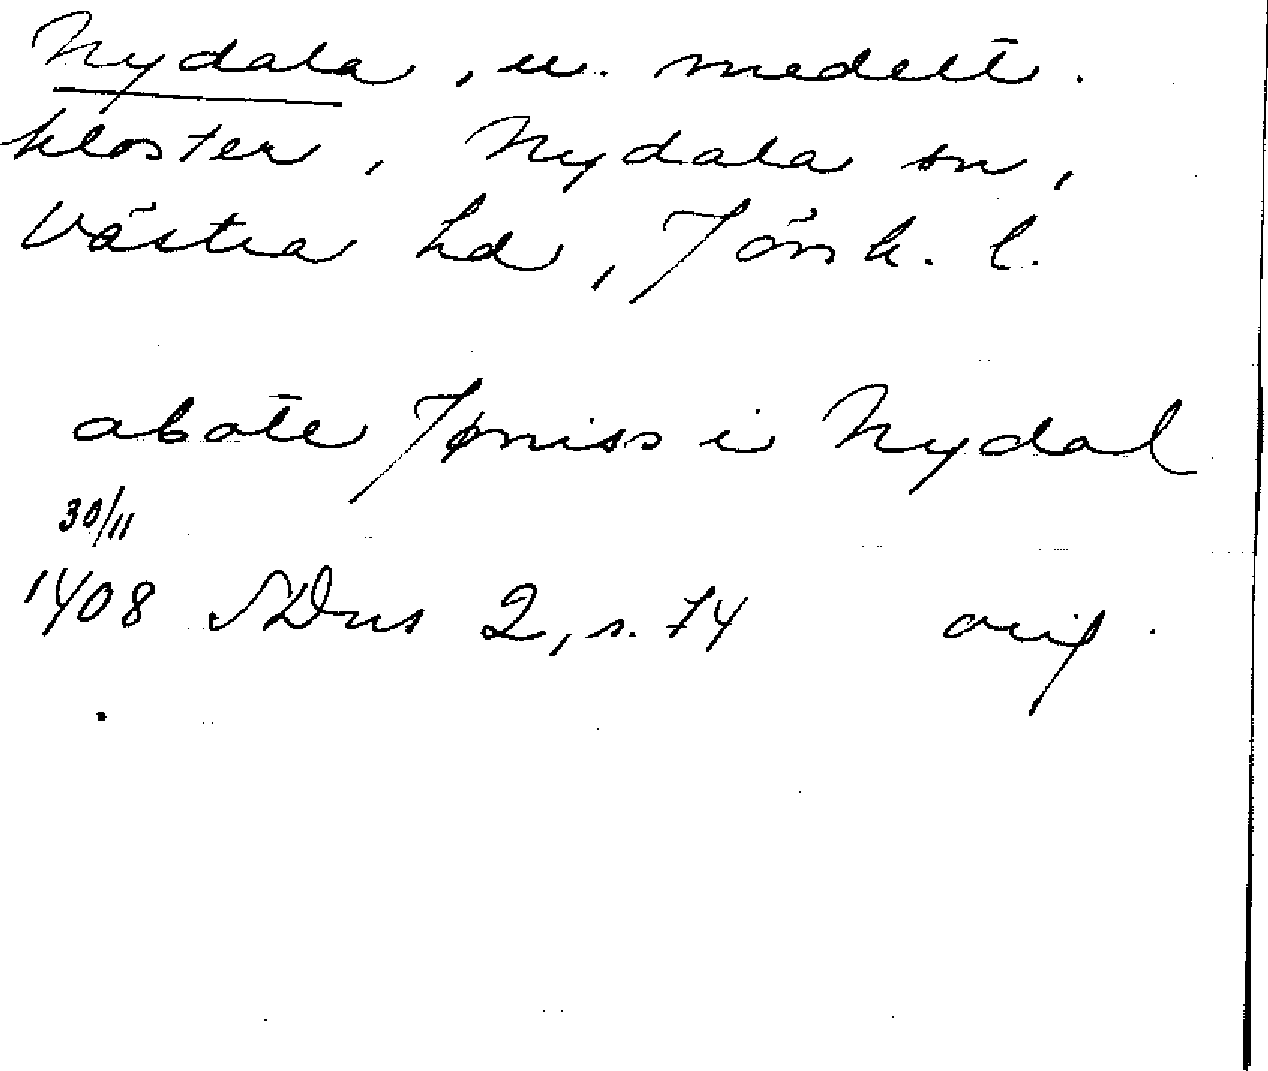 Nydala, u. medelt.
kloster, Nydala sn,
Västra hd, Jönk. l.
abote Jøniss i Nydal
30/11
1408 SDns 2, s. 74 orig.